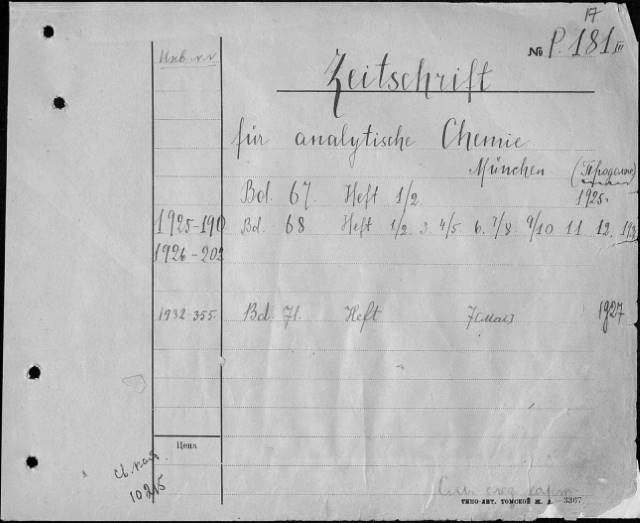 17
№ P. 181 III
Инв. №№
Zeitschrift
für analytische Chemie
München (Продолж.)
Bd. 67. Heft 1/2. 1925.
1925-190 Bd. 68 Heft 1/2. 3. 4/5 6. 7/8 9/10 11 12.
1926-202
1932-355 Bd. 71. Heft 7 [Mai] 1927
Цена
10215
См. след. карт.
ТИПО-ЛИТ. ТОМСКОЙ Ж. Д. 3367